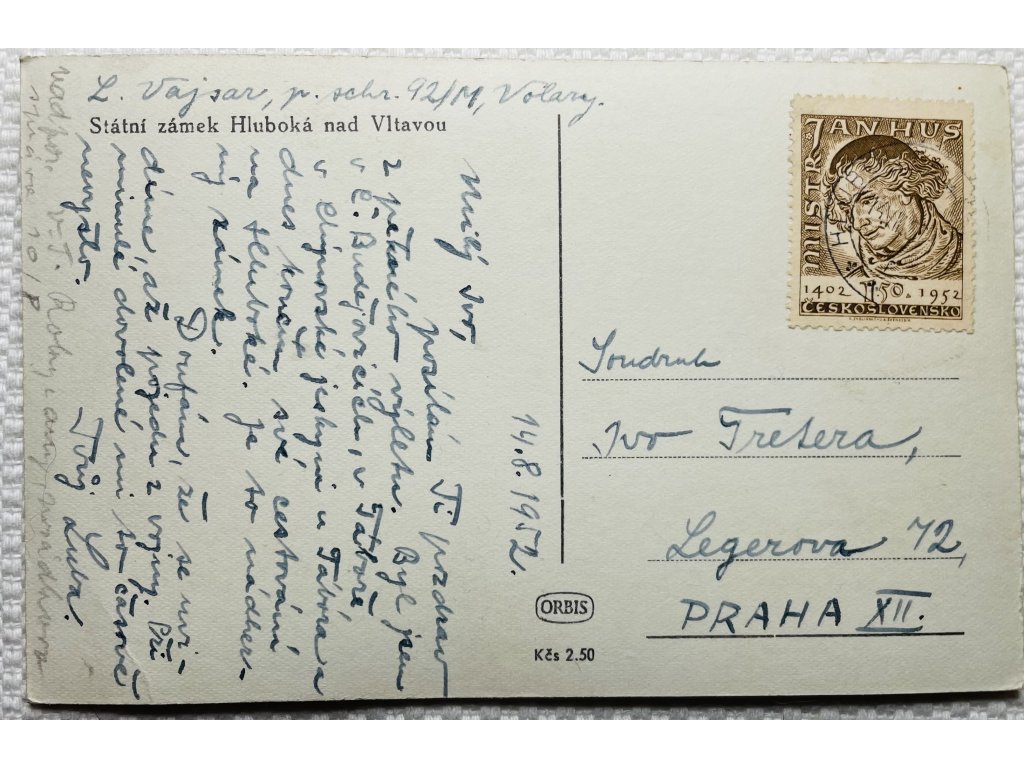 L. Vajsar, p. schr. 92/M, Volary.
Státní zámek Hluboká nad Vltavou
14.8.1952.
Milý Ivo,
posílám Ti pozdrav
z pěkného výletu. Byl jsem
v Č. Budějovicích, v Táboře
v chýnovské jeskyni u Tábora a
dnes končím své cestování
na Hluboké. Je to nádher-
ný zámek.
Doufám, že se uvi-
díme, až pojedu z vojny. Při
minulé dovolené mi to časově
nevyšlo.
Tvůj Luba.
MISTR JAN HUS
1402 1.50 1952
ČESKOSLOVENSKO
Soudruh
Ivo Tretera,
Legerova 72,
PRAHA XII.
ORBIS
Kčs 2.50